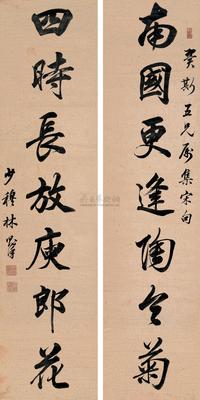 南國更逢陶令菊
癸斯五兄屬集宋句
四時長放庾郎花
少穆林則徐